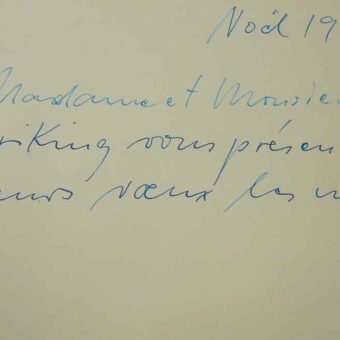 Noël 19
Madame et Monsie
iKing vous présen
eurs vœux les m